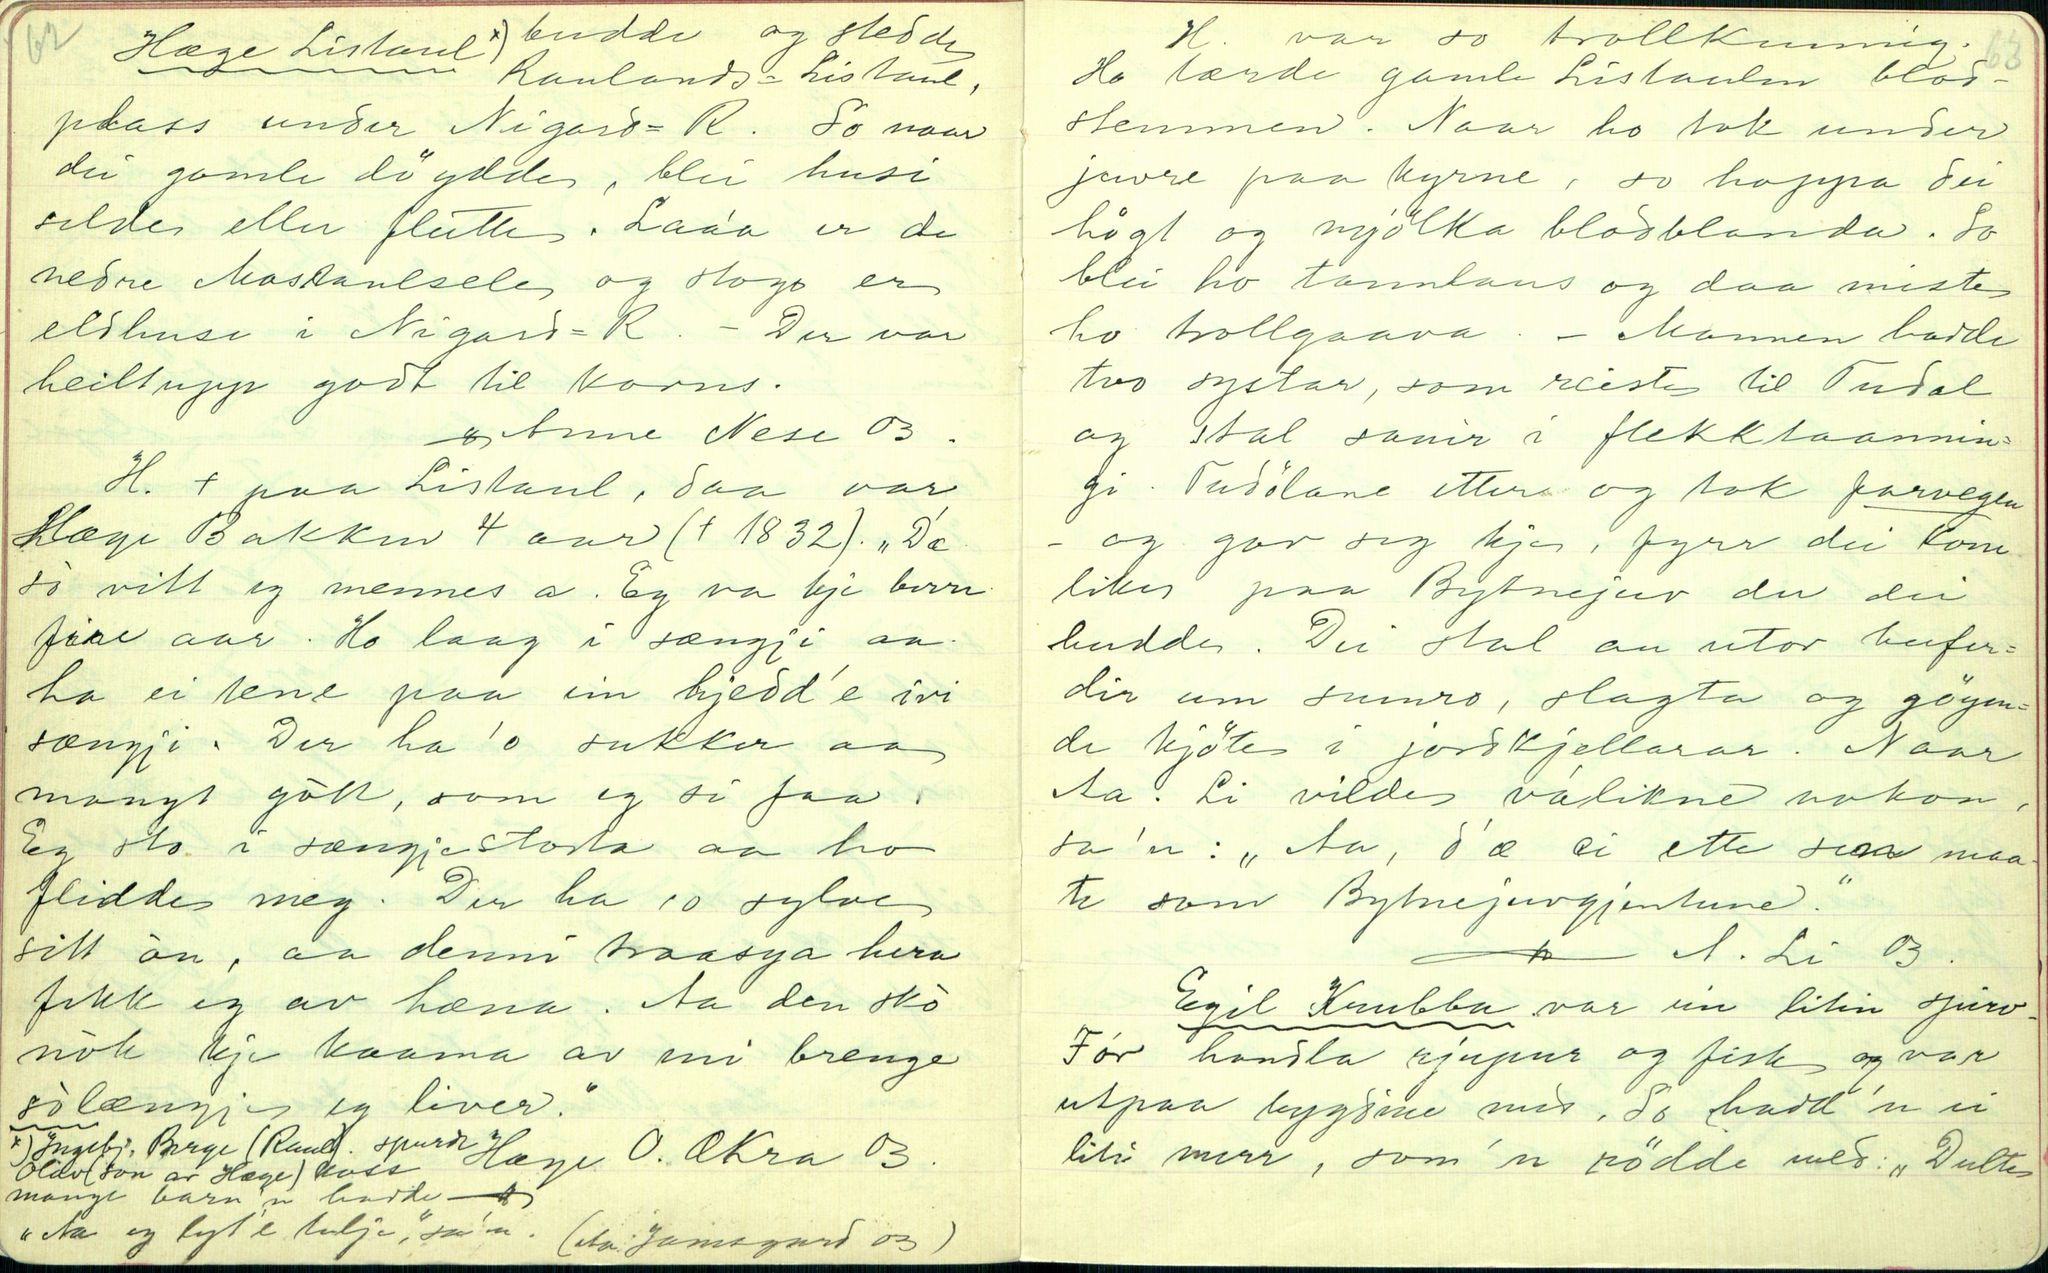 62
Hæge Listaul x) budde og stedde
Raulands-Listaul,
plass under Nigard-R. So naar
dei gamle döydde, blei husi
selde eller flutte. Laáa er de
nedre Mostaulsele, og stogo er
eldhuse i Nigard-R. - Der var
heiltupp godt til korns.
Anne Nese 03.
H. + paa Listaul, daa var
Hæge Bakken 4 aar († 1832). „Dæ
so vitt eg mennes a. Eg va kje berre
fire aar. Ho laag i sængji aa
ha ei tene paa ein hjedd'e ivi
sængji. Der ha'o sukker aa
mangt gött, som eg si faa.
Eg sto i sængjestorda aa ho
fliddde meg. Der ha'o sylve
sitt òn, aa denni traasya hera
fekk eg av hæna. Aa den skò
nòk kje kaama av mi brenge
sòlængje eg liver."
Hæge O. Ækra 03.
x) Ingebj. Berge (Raul). spurde
Olav (son av Hæge) koss
mange barn'n hadde
„Aa eg lyt'e telje," sa'n. (Aa. Jamsgard 03)
63
H. var so trollkunnig.
Ho lærde gamle Listaulen blod-
stemmen. Naar ho tok under
juvre paa kyrne, so hoppa dei
högt og mjölka blodblanda. So
blei ho tannlaus og daa miste
ho trollgaava. - Mannen hadde
tvo systar, som reiste til Tudal
og stal sauir i flekktaamin-
gi. Tudölane ettere og tok farvegen
- og gav seg kje, fyrr dei kom
likes paa Bytnejuv der dei
budde. Dei stal au utor bufer-
dir um sumro, slagta og göym-
de kjöte i jordkjellarar. Naar
Aa. Li vilde válikne nokon,
sa'n: „Aa, d'æ ei ette sea maa-
te som Bytnejuvgjentune."
A. Li 03.
Egil Krubba var ein liten spurv.
Fór handla rjupur og fisk og var
utpaa bygdine med. So hadd'n ei
liti merr, som'n rödde med: „Dulte